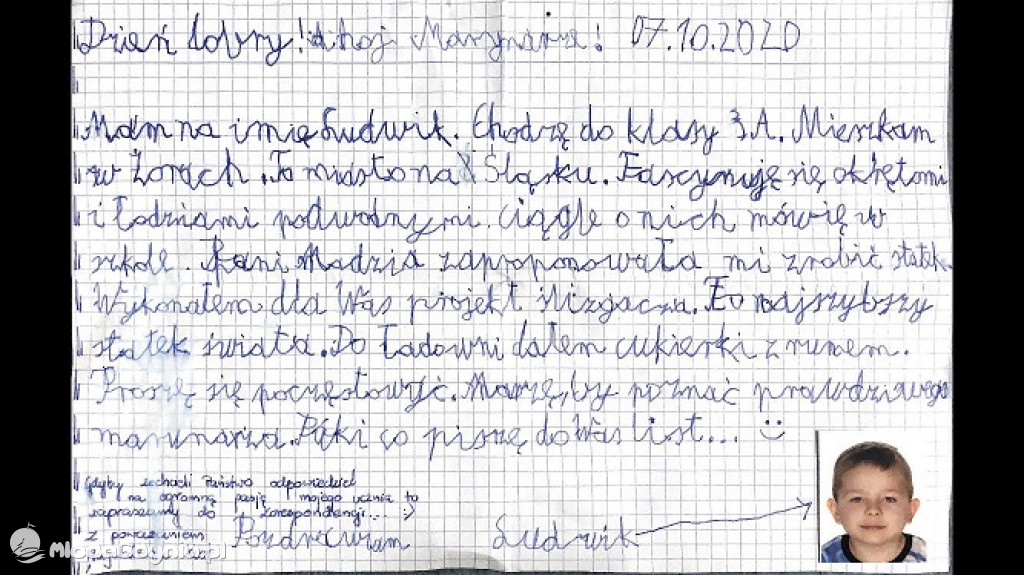 Dzień dobry! Ahoj Marynarze! 07.10.2020
Mam na imię Ludwik. Chodzę do klasy 3A. Mieszkam
w Żorach. To miasto na Śląsku. Fascynuję się okrętami
i łodziami podwodnymi. Ciągle o nich mówię w
szkole. Pani Madzia zaproponowała mi zrobić statek.
Wykonałem dla Was projekt ślizgacza. To najszybszy
statek świata. Do ładowni dałem cukierki z rumem.
Proszę się poczęstować. Marzę, by poznać prawdziwego
marynarza. Póki co piszę do Was list... :)
Gdyby zechcieli Państwo odpowiedzieć
na ogromną pasję mojego ucznia to
zapraszamy do korespondencji... :)
Z poważaniem
Pozdrawiam Ludwik